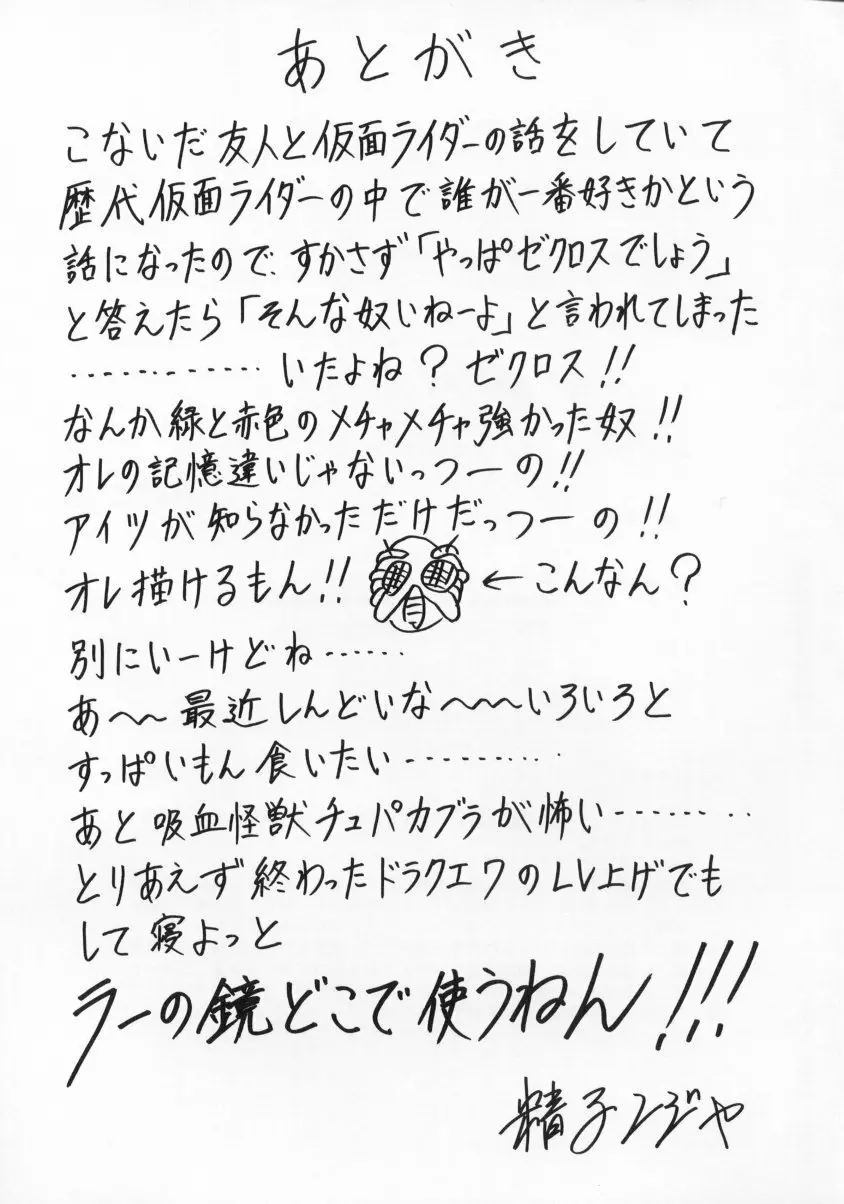 あとがき
こないだ友人と仮面ライダーの話をしていて
歴代仮面ライダーの中で誰が一番好きかという
話になったので、すかさず「やっぱゼクロスでしょう」
と答えたら「そんな奴いねーよ」と言われてしまった
……………… いたよね？ゼクロス!!
なんか緑と赤色のメチャメチャ強かった奴!!
オレの記憶違いじゃないっつーの!!
アイツが知らなかっただけだっつーの!!
オレ描けるもん!! ←こんなん？
別にいーけどね……
あ〜〜最近しんどいな〜〜〜いろいろと
すっぱいもん食いたい…………
あと吸血怪獣チュパカブラが怖い…………
とりあえず終わったドラクエ7のLV上げでも
して寝よっと
ラーの鏡どこで使うねん!!!
精子ンジャ